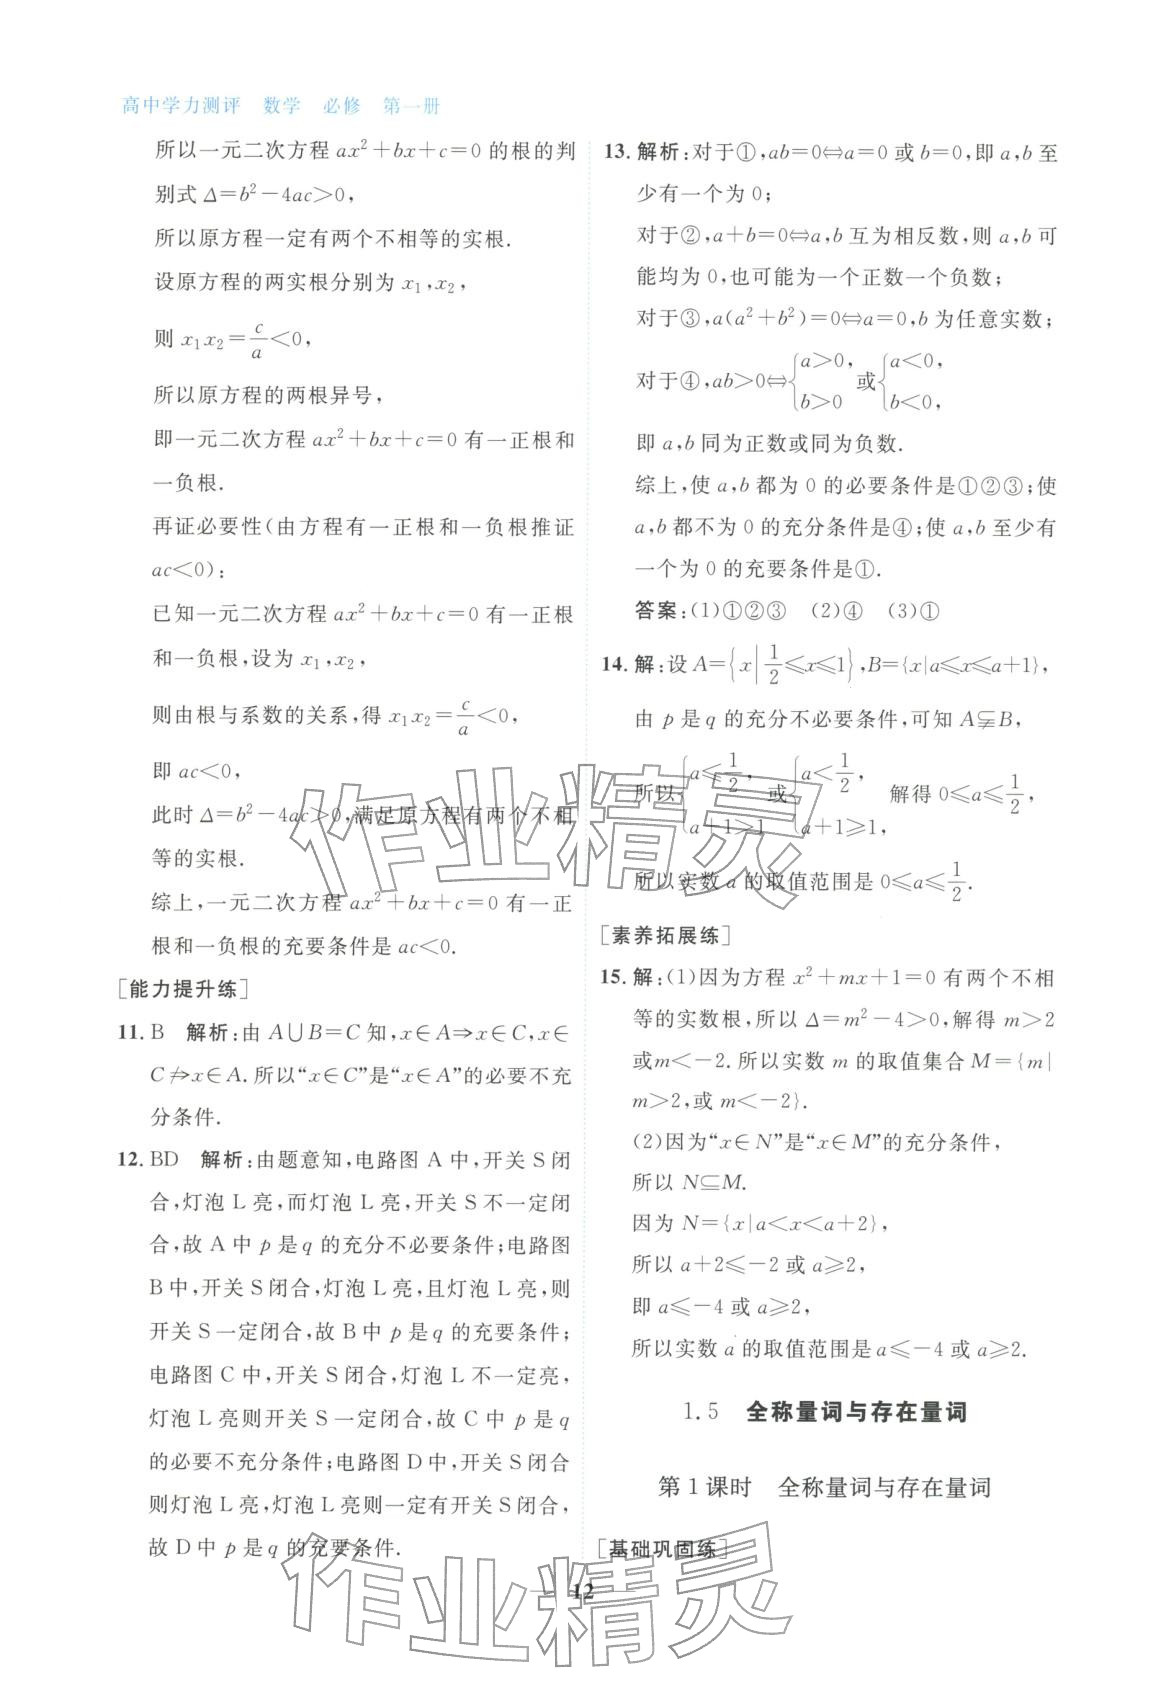 高中学力测评 数学 必修 第一册
所以一元二次方程 ax²+bx+c=0 的根的判
别式 Δ=b²-4ac>0,
所以原方程一定有两个不相等的实根.
设原方程的两实根分别为 x₁,x₂,
则 x₁x₂=c/a<0,
所以原方程的两根异号,
即一元二次方程 ax²+bx+c=0 有一正根和
一负根.
再证必要性(由方程有一正根和一负根推证
ac<0):
已知一元二次方程 ax²+bx+c=0 有一正根
和一负根,设为 x₁,x₂,
则由根与系数的关系,得 x₁x₂=c/a<0,
即 ac<0,
此时 Δ=b²-4ac>0,满足原方程有两个不相
等的实根.
综上,一元二次方程 ax²+bx+c=0 有一正
根和一负根的充要条件是 ac<0.
[能力提升练]
11. B 解析:由 A∪B=C 知,x∈A⇒x∈C,x∈
C⇏x∈A.所以“x∈C”是“x∈A”的必要不充
分条件.
12. BD 解析:由题意知,电路图 A 中,开关 S 闭
合,灯泡 L 亮,而灯泡 L 亮,开关 S 不一定闭
合,故 A 中 p 是 q 的充分不必要条件;电路图
B 中,开关 S 闭合,灯泡 L 亮,且灯泡 L 亮,则
开关 S 一定闭合,故 B 中 p 是 q 的充要条件;
电路图 C 中,开关 S 闭合,灯泡 L 不一定亮,
灯泡 L 亮则开关 S 一定闭合,故 C 中 p 是 q
的必要不充分条件;电路图 D 中,开关 S 闭合
则灯泡 L 亮,灯泡 L 亮则一定有开关 S 闭合,
故 D 中 p 是 q 的充要条件.
13. 解析:对于①,ab=0⇔a=0 或 b=0,即 a,b 至
少有一个为 0;
对于②,a+b=0⇔a,b 互为相反数,则 a,b 可
能均为 0,也可能为一个正数一个负数;
对于③,a(a²+b²)=0⇔a=0,b 为任意实数;
对于④,ab>0⇔{a>0, b>0 或{a<0, b<0,
即 a,b 同为正数或同为负数.
综上,使 a,b 都为 0 的必要条件是①②③;使
a,b 都不为 0 的充分条件是④;使 a,b 至少有
一个为 0 的充要条件是①.
答案:(1)①②③ (2)④ (3)①
14. 解:设 A={x|1/2≤x≤1},B={x|a≤x≤a+1},
由 p 是 q 的充分不必要条件,可知 A⫋B,
所以{a≤1/2, a+1>1 或{a<1/2, a+1≥1, 解得 0≤a≤1/2,
所以实数 a 的取值范围是 0≤a≤1/2.
[素养拓展练]
15. 解:(1)因为方程 x²+mx+1=0 有两个不相
等的实数根,所以 Δ=m²-4>0,解得 m>2
或m<-2.所以实数 m 的取值集合 M={m|
m>2,或 m<-2}.
(2)因为“x∈N”是“x∈M”的充分条件,
所以 N⊆M.
因为 N={x|a<x<a+2},
所以 a+2≤-2 或 a≥2,
即 a≤-4 或 a≥2,
所以实数 a 的取值范围是 a≤-4 或 a≥2.
1.5 全称量词与存在量词
第 1 课时 全称量词与存在量词
[基础巩固练]
12
作业精灵
作业精灵